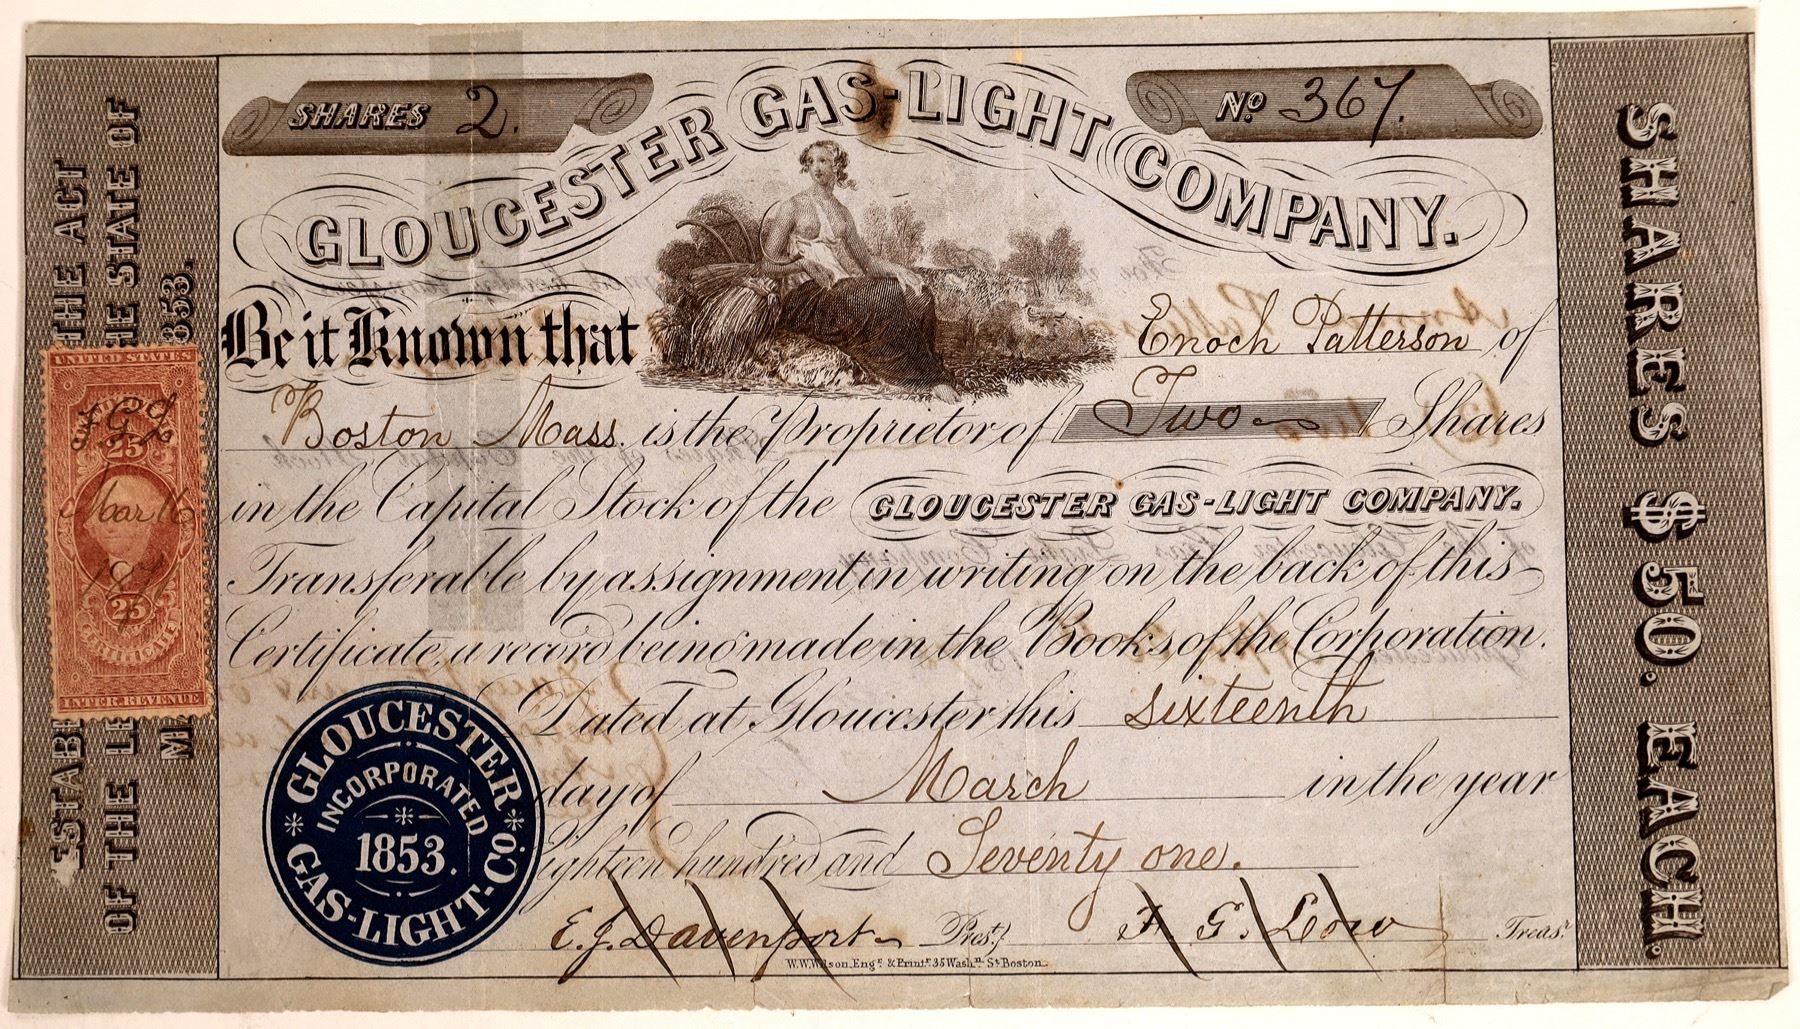 SHARES 2.
No. 367.
GLOUCESTER GAS-LIGHT COMPANY.
Be it Known that Enoch Patterson of
Boston Mass. is the Proprietor of Two Shares
in the Capital Stock of the GLOUCESTER GAS-LIGHT COMPANY.
Transferable by assignment in writing on the back of this
Certificate, a record being made in the Books of the Corporation.
Dated at Gloucester this sixteenth
day of March in the year
Eighteen hundred and Seventy one.
E. J. Davenport Prest.
F. G. Low Treasr.
W. W. Wilson Engr. & Printr. 35 Washn. St. Boston.
GLOUCESTER GAS-LIGHT-CO.
INCORPORATED
1853.
THE ACT
OF THE LE HE STATE OF
M 1853.
UNITED STATES
F G L
25
Mar 16
1871
25
CERTIFICATE
INTER. REVENUE
SHARES $50. EACH.